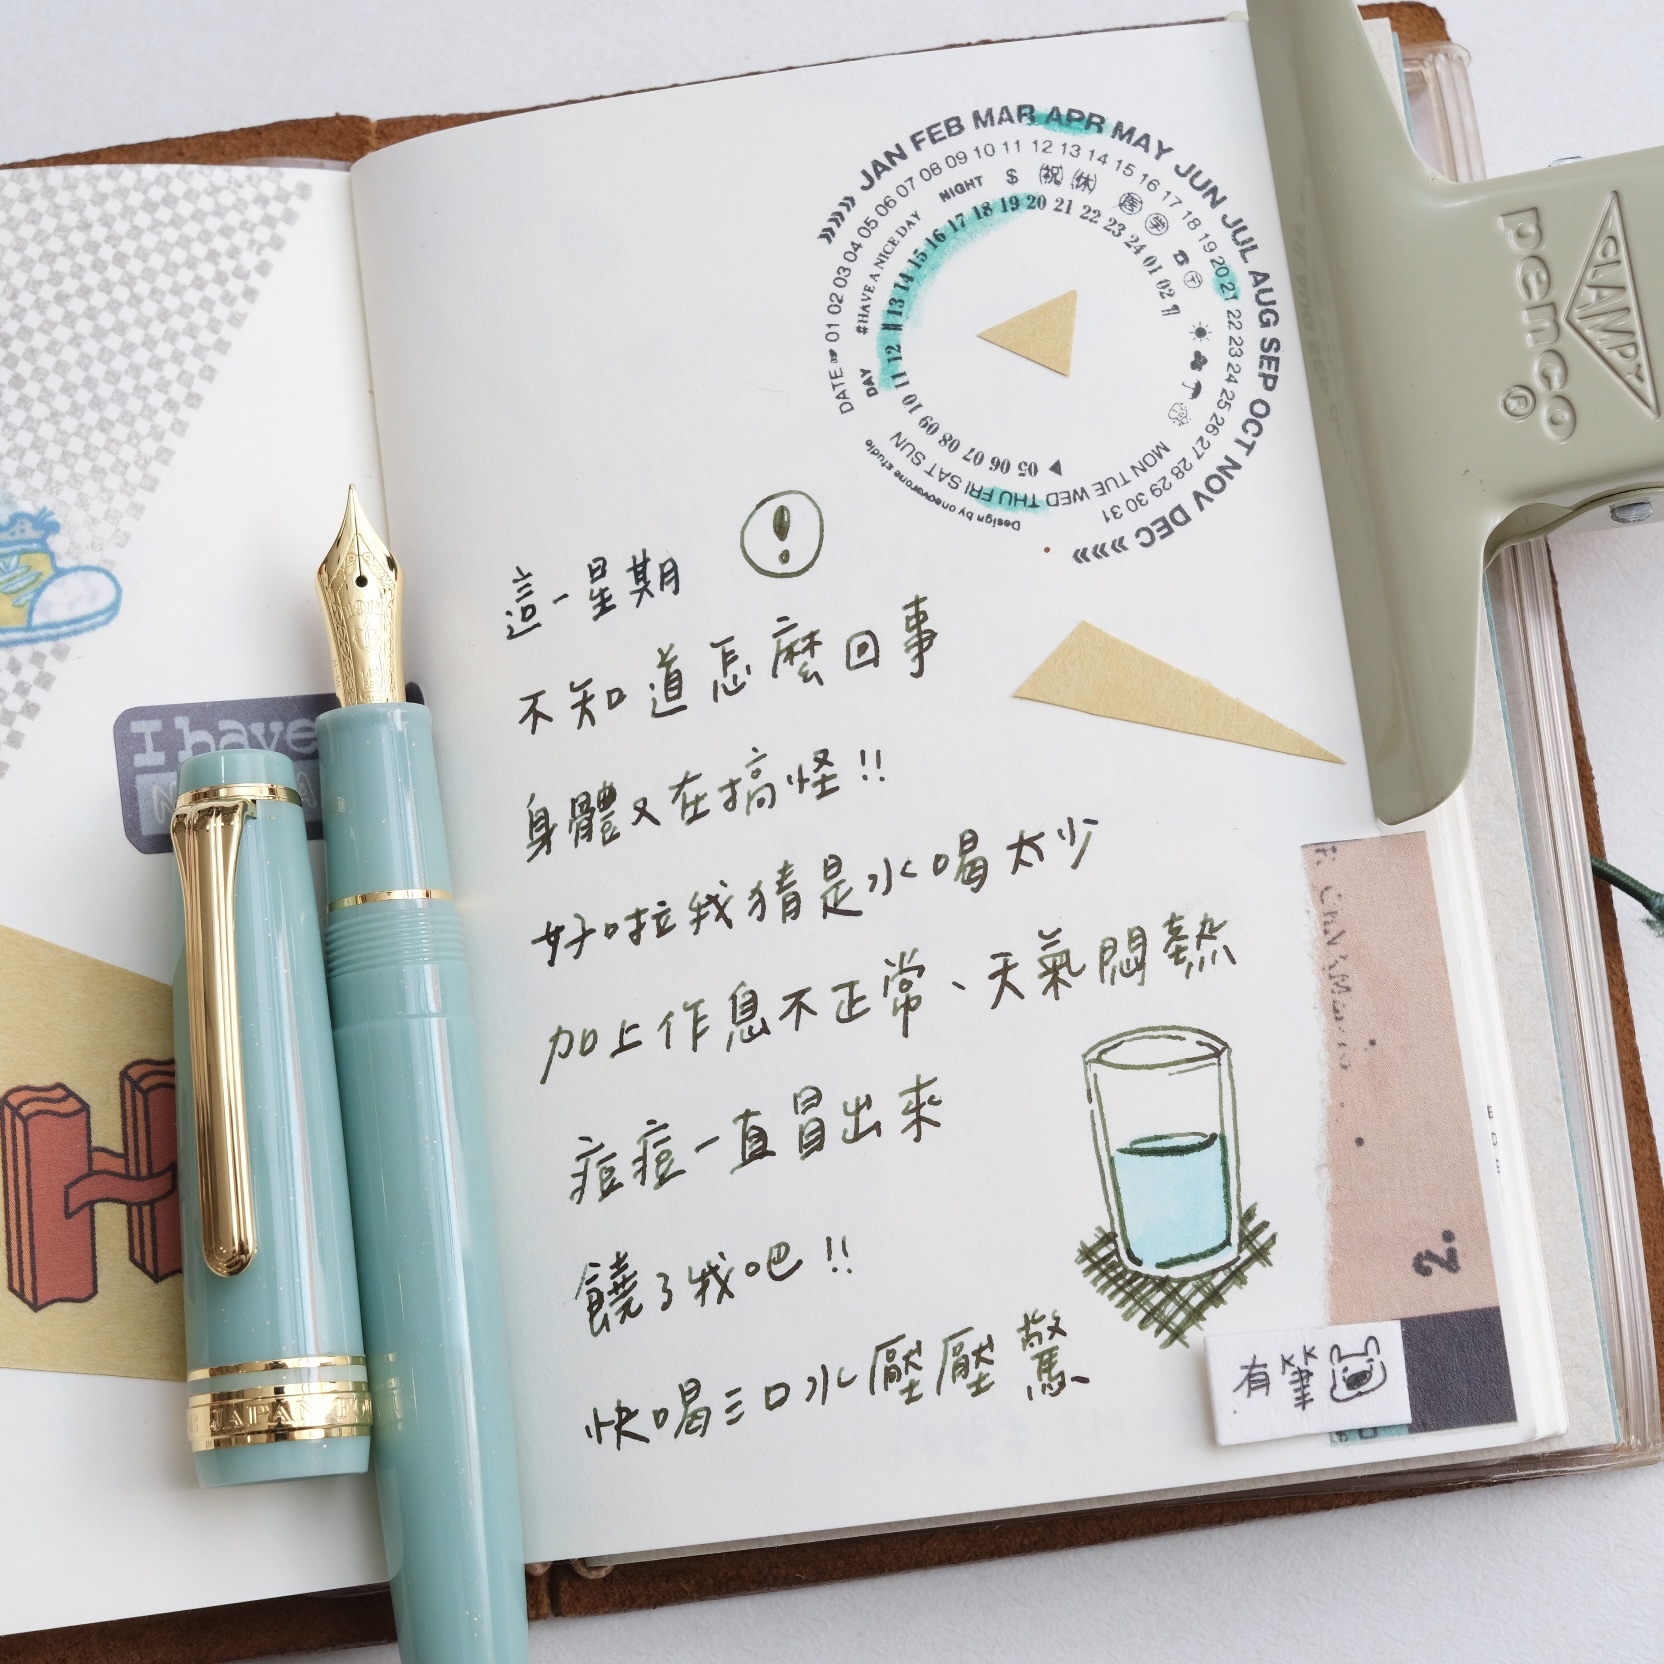 »»» JAN FEB MAR APR MAY JUN JUL AUG SEP OCT NOV DEC »»»
DATE 01 02 03 04 05 06 07 08 09 10 11 12 13 14 15 16 17 18 19 20 21 22 23 24 25 26 27 28 29 30 31
DAY #HAVE A NICE DAY NIGHT $ 祝 休
MON TUE WED THU FRI SAT SUN
05 06 07 08 09 10 11 12 13 14 15 16 17 18 19 20 21 22 23 24 01 02
Design by oneovarone studio
penco
CLAMPY
I have
這一星期
不知道怎麼回事
身體又在搞怪!!
好啦我猜是水喝太少
加上作息不正常、天氣悶熱
痘痘一直冒出來
饒了我吧!!
快喝三口水壓壓驚
2.
有筆
JAPAN
H